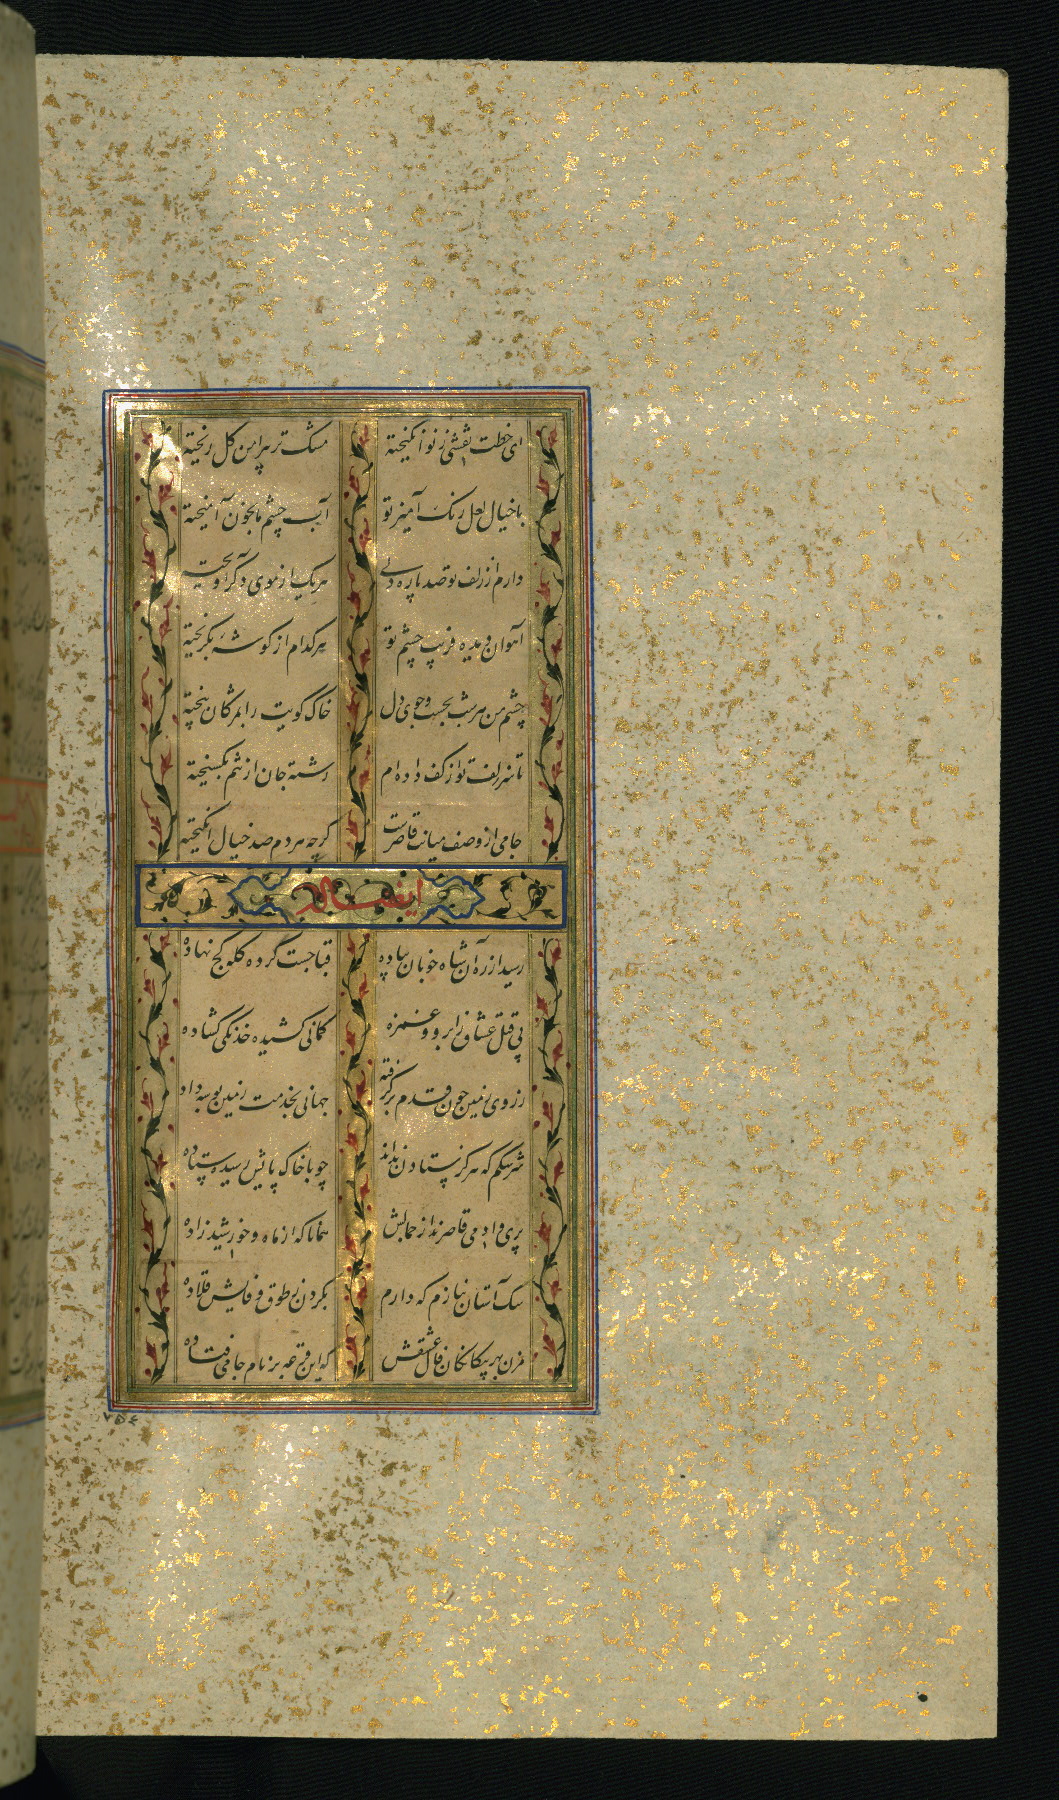 ای خطت نقشی ز نو انگیخته مشک تر پیرامن گل ریخته
با خیال لعل رنگ آمیز تو آب چشم ما بخون آمیخته
دارم از زلف تو صد پاره دلی هر یک از موی دگر آویخته
آهوان دیده فریب چشم تو هر کدام از گوشه بگریخته
چشم من هر شب بجست و جوی دل خاک کویت را بمژگان بیخته
تا سر زلف تو از کف داده ام رشته جان از تنم بگسیخته
جامی از وصف میانت قاصرست گرچه هر دم صد خیال انگیخته
ایضا له
رسید از ره آن شاه خوبان پیاده قبا چست کرده کله کج نهاده
پی قتل عشاق از ابرو و غمزه کمانی کشیده خدنگی گشاده
ز روی زمین چون قدم برگرفته جهانی بخدمت زمین بوسه داده
سرشکم که هرگز ستادن نداند چو با خاک پایش رسیده ستاده
پری و آدمی قاصرند از جمالش همانا که از ماه و خورشید زاده
سگ آستان نیازم که دارم بگردن ز طوق وفایش قلاده
مزن بهر بیگانگان فال عشقش که این قرعه بر نام جامی فتاده
۷۵۴